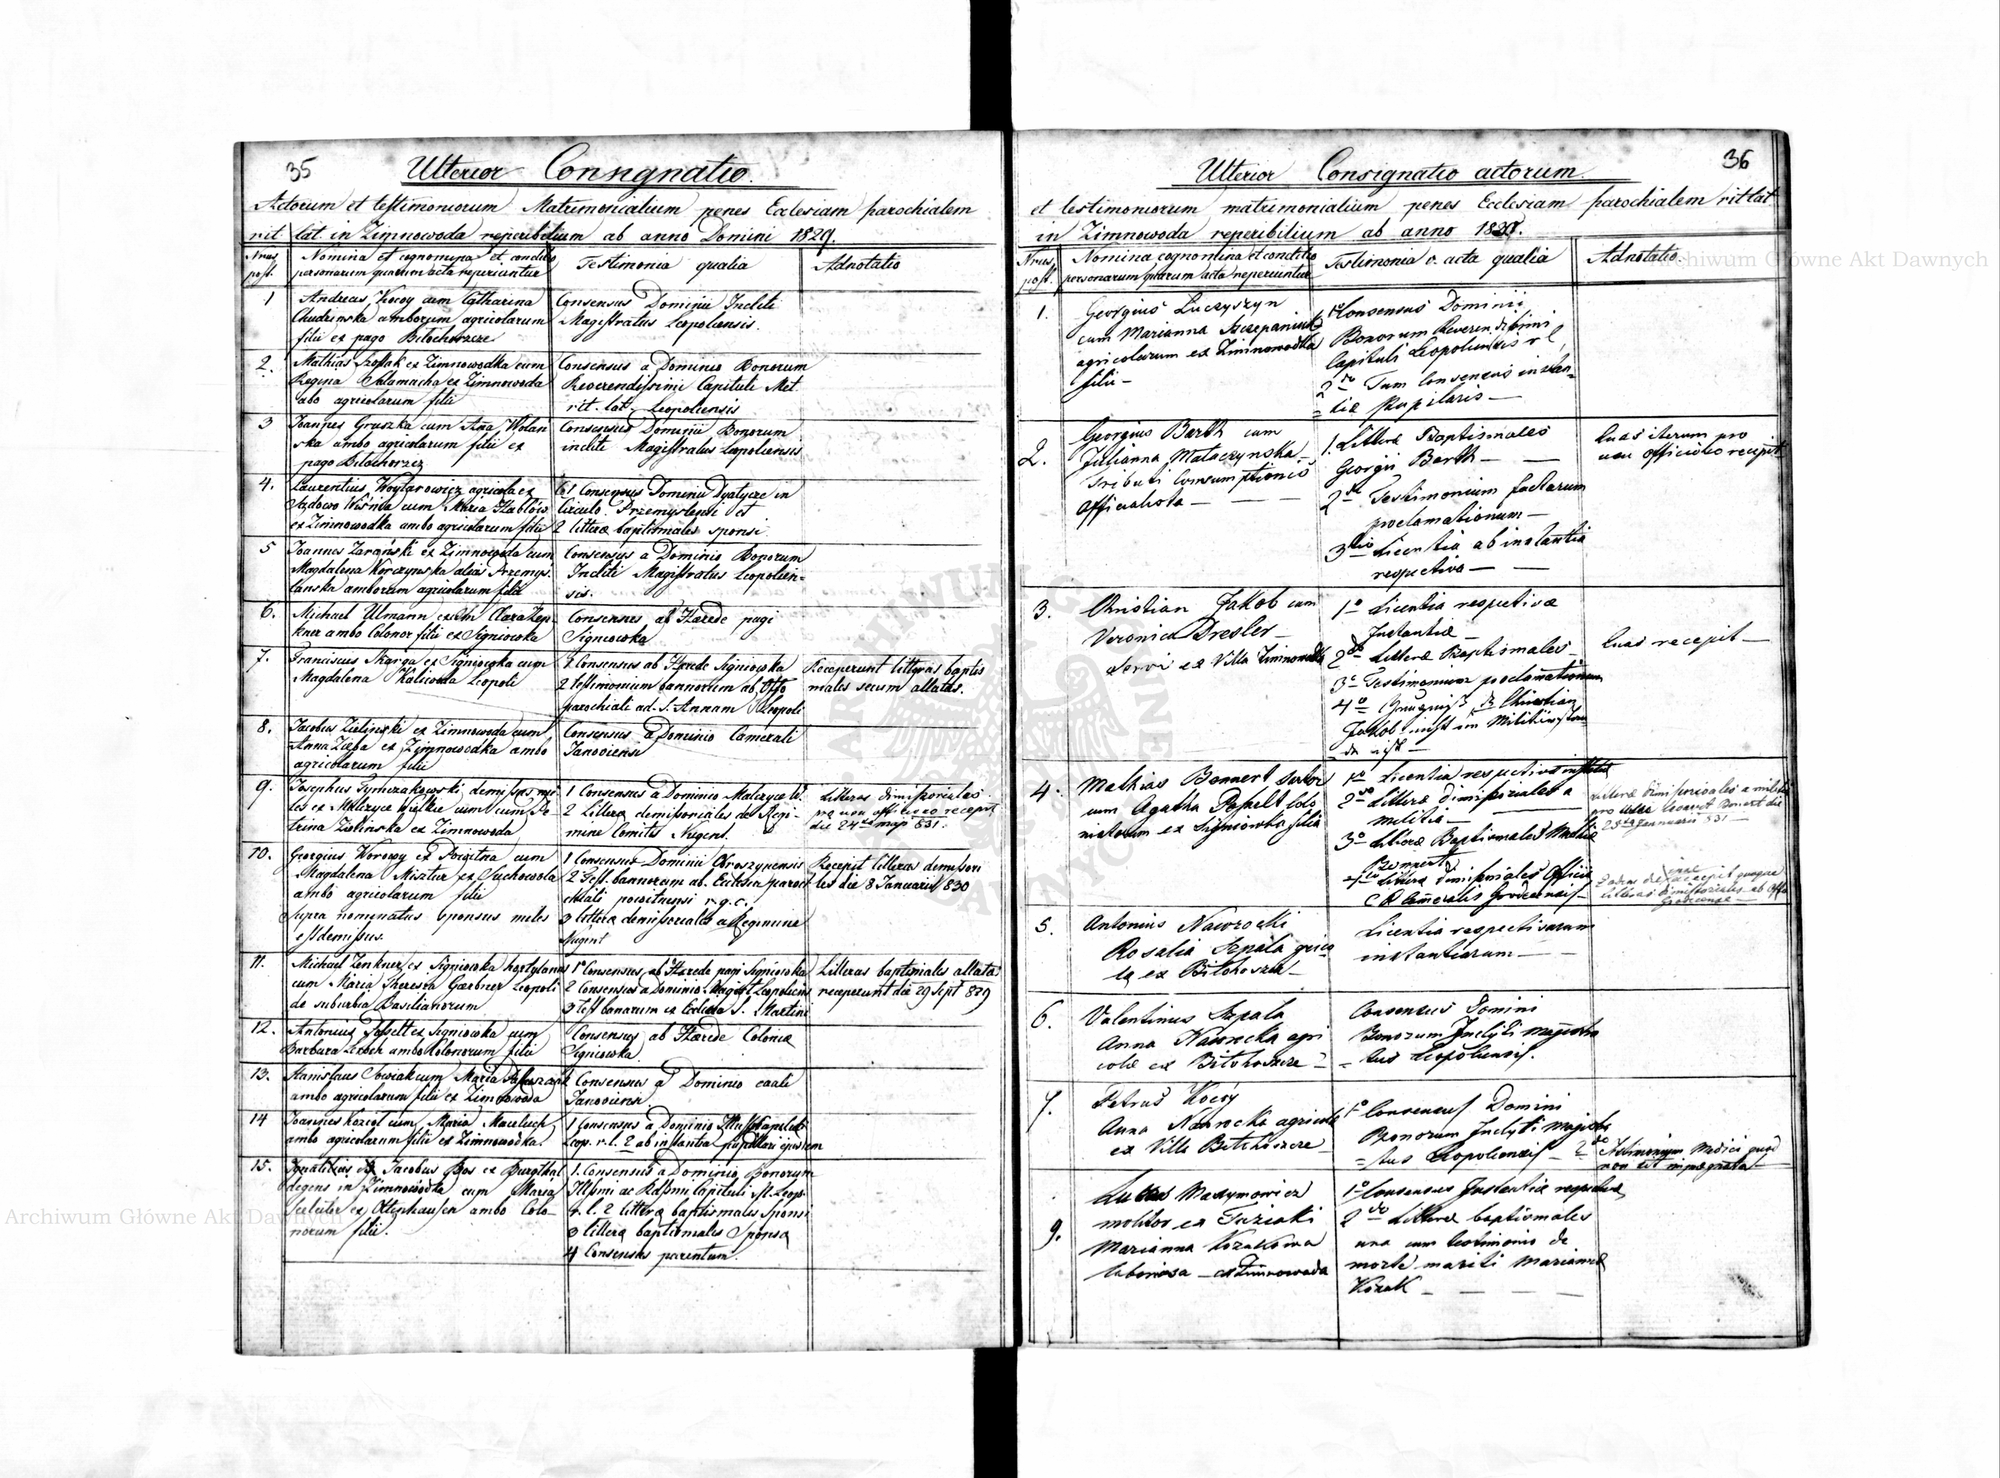 35
Ulterior Consignatio.
Actorum et testimoniorum Matrimonialium penes Ecclesiam parochialem
rit. lat. in Zimnowoda reperibilium ab anno Domini 1829.
Nrus post.
Nomina et cognomina et conditio
personarum quorum acta reperiuntur
Testimonia qualia
Adnotatio
1
Andreas Kocoy cum Catharina
Chudzinska amborum agricolarum
filii ex pago Bilochorzcze
Consensus Dominii Incliti
Magistratus Leopoliensis.
2.
Mathias Szostak ex Zimnowodka cum
Regina Chlamacha ex Zimnowoda
ambo agricolarum filii
Consensus a Dominio Bonorum
Reverendissimi Capituli Met
rit. lat. Leopoliensis
3
Joannes Gruszka cum Anna Wolan
ska ambo agricolarum filii ex
pago Bilochorzcz
Consensus Dominii Bonorum
incliti Magistratus Leopoliensis
4.
Laurentius Woytarowicz agricola ex
Wisnia cum Maria
ex Zimnowodka ambo agricolarum filii
1 Consensus Dominii Dydtycze in
Circulo Przemysliensi et
2 litterae baptismales sponsi
5
Joannes Zaranski ex Zimnowoda cum
Magdalena Korczynska alias Przemys.
lanska amborum agricolarum filii
Consensus a Dominio Bonorum
Incliti Magistratus Leopolien=
sis.
6.
Michael Ulmann cum Clara Zen
kner ambo Colonor filii ex Signiowka
Consensus ab Haerede pagi
Signiowka
7.
Franciscus Skarga ex Signiowka cum
Magdalena Kalicoda Leopoli
1 Consensus ab Haerede Signiowka
2 testimonium bannorum ab Offo
parochiali ad S. Annam Leopoli
Receperunt litteras baptis
males secum allatas.
8.
Jacobus Zielinski ex Zimnowoda cum
Anna Zieba ex Zimnowodka ambo
agricolarum filii
Consensus a Dominio Camerali
Janoviensi
9.
Josephus Tymczakowski demissus mi
les ex Malczyce Wielkie cum Pe=
trina Zielinska ex Zimnowoda
1 Consensus a Dominio Malczyce W.
2 Litterae demissoriales de Regi=
mine Comitis Nugent.
Litteras dimissoriales
pro non officioso recepit
die 24ta maji 831.
10.
Georgius Worowy ex Powitna cum
Magdalena Misztur ex Suchowola
ambo agricolarum filii
Supra nominatus sponsus miles
est demissus.
1 Consensus Dominii Obroszynensis
2 Test. bannorum ab Ecclesia paroc
chiali powitnensi r. g. c.
3 litterae demissoriales a Regimine
Nugent
Recepit litteras demissori
les die 8 Januarii 830
11.
Michael Zenkner ex Signiowka hortulanus
cum Maria Theresia Gaerbner Leopoli
de suburbia Basilianorum
1o Consensus ab Haerede pagi Signiowka
2 Consensus a Dominio Magist Leopoliens
3 test banarum ex Ecclesia S. Martini
Litteras baptismales allatas
receperunt die 29 Sept 829
12.
Antonius Posselt ex Signiowka cum
Barbara Leroch ambo Kolonorum filii
Consensus ab Haerede Coloniae
Signiowka.
13.
Stanislaus Sowiak cum Maria
ambo agricolarum filii ex Zimnowoda
Consensus a Dominio caali
Janoviensi
14
Joannes Koziol cum Maria Maceluch
ambo agricolarum filii ex Zimnowodka.
1 Consensus a Dominio Capituli
Leop. r. l. 2 ab instantia pupillari
15.
Jacobus Bos ex Burgthal
degens in Zimnowodka cum Maria
ex Ottenhausen ambo Colo=
norum filii.
1. Consensus a Dominio Bonorum
Illssmi ac Rdssmi Capituli M. Leop.
r. l. 2 litterae baptismales Sponsi
3 litterae baptismales Sponsa
4 Consensus parentum.
36
Ulterior Consignatio actorum.
et testimoniorum matrimonialium penes Ecclesiam parochialem rit lat
in Zimnowoda reperibilium ab anno
Nrus post.
Nomina cognomina et conditio
personarum quarum acta reperiuntur
Testimonia v. acta qualia
Adnotatio.
1.
Georgius Luczyszyn
cum Marianna Szczepaniuk
agricolarum ex Zimnowodka
filii —
1o Consensus Dominii
Bonorum Reverendissimi
Capituli Leopoliensis r l,
2do Tum Consensus instan=
tiae Pupilaris —
2.
Georgius Barth cum
Julianna Mataczynska —
Tributi Consumptionis
Officialista —
1. Litterae Baptismales
Georgii Barth —
2do Testimonium factarum
proclamationum —
3tio Licentia ab instantia
respectiva —
Quas iterum pro
usu officioso recepit
3.
Christian Jakob cum
Veronica Dresler —
Servi ex Villa Zimnowodka
1o Licentia respectivae
Instantiae —
2do Litterae Baptismales —
3o Testimonium proclamationum
4o Christian
Jakob nicht im Militärstan
de ist —
Quas recepit —
4.
Mathias Bennert Sartor
cum Agatha Posselt Colo
niatorum ex Signiowka filia
1o Licentia respectiva
2do Litterae dimissoriales a
militia —
3o Litterae Baptismales Mathiae
Bennert
4to Litterae dimissoriales Officii
C R Cameralis Grodecensis —
Litterae dimissoriales a militia
Bennert die
25ta Januarii 831 —
recepit quoque
litteras dimissoriales ab Offo
5.
Antonius Nawrocki
Rosalia Szpala
ex Bilohoszcz —
Licentia respectivarum
instantiarum —
6.
Valentinus Szpala
Anna Nawrocka agri
colae ex Bilohoszcze —
Consensus Domini
Bonorum Inclyti magistra
= tus Leopoliensis.
7.
Petrus Kocoy
Anna Nawrocka agricola
ex Villa Bilohoszcze —
1o Consensus Domini
Bonorum Inclyti magistra
= tus Leopoliensis — 2do Testimonium Medici quod
non sit impregnata —
9.
Lucas Maxymowicz
molitor ex
Marianna Kozakowa
laboriosa — ex Zimnowoda
1o Consensus Instantiae respectivae
2do Litterae baptismales
una cum testimonio de
morte mariti Marianna
Kozak —
Archiwum Główne Akt Dawnych
Archiwum Główne Akt Dawnych
ARCHIWUM GŁÓWNE AKT DAWNYCH